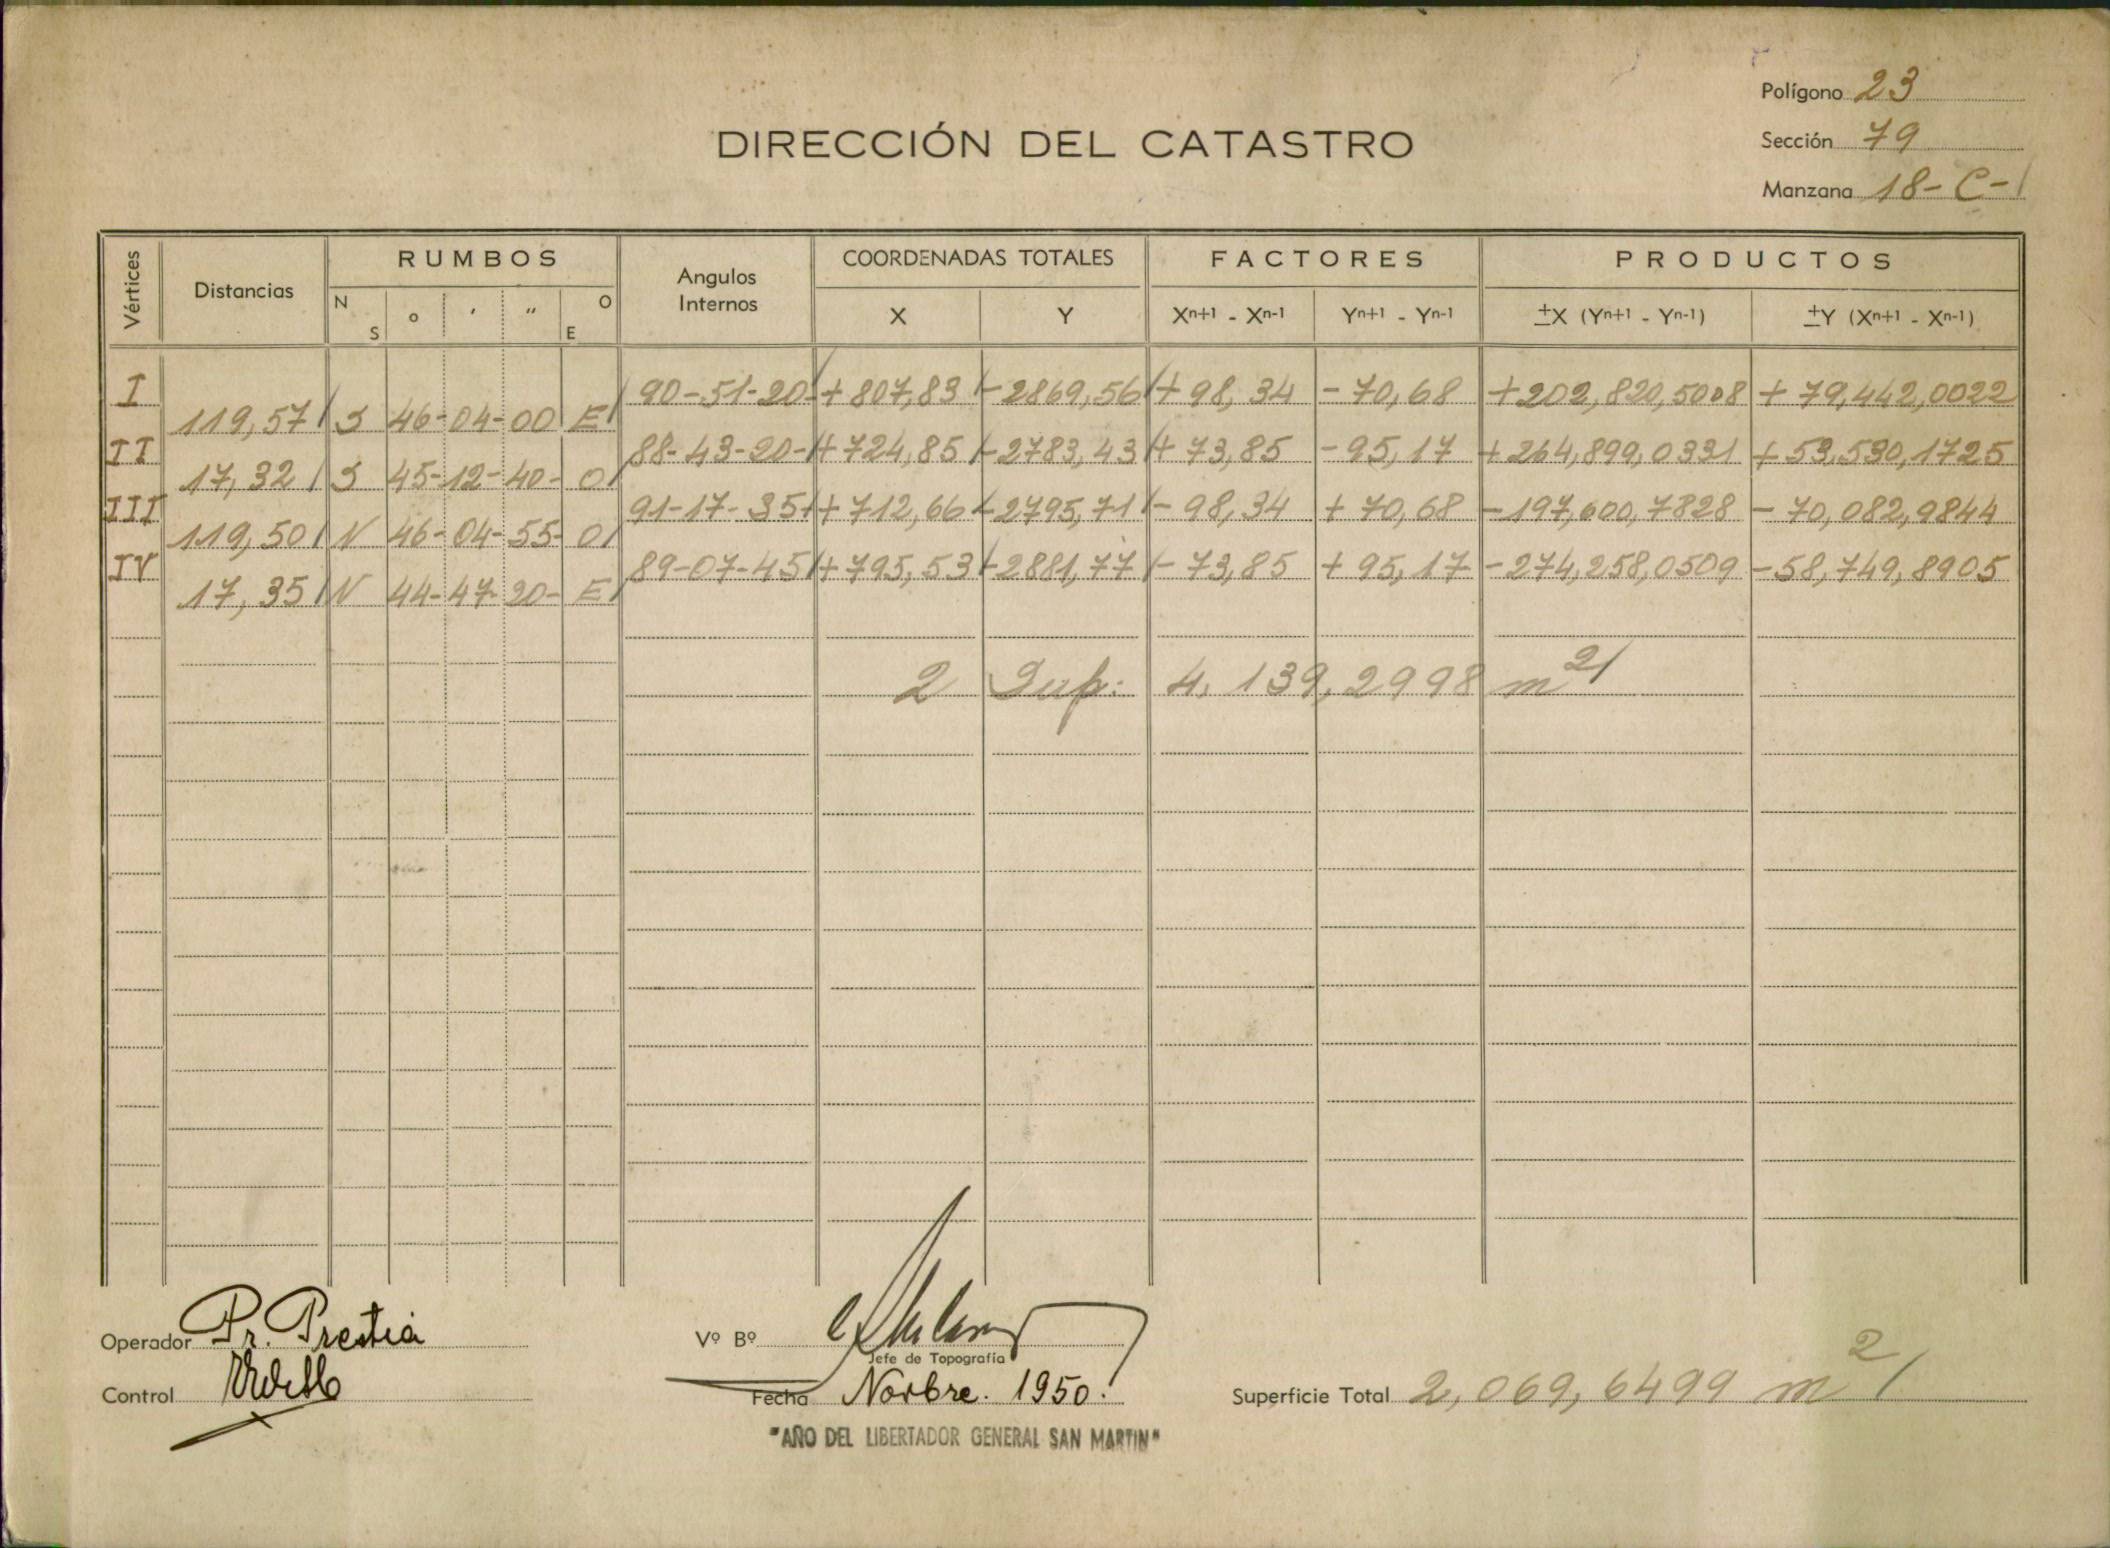 Polígono 23
DIRECCIÓN DEL CATASTRO
Sección 79
Manzana 18-C-
Vértices Distancias RUMBOS Angulos Internos COORDENADAS TOTALES FACTORES PRODUCTOS
N S o ' " O E X Y Xn+1 - Xn-1 Yn+1 - Yn-1 ±X (Yn+1 - Yn-1) ±Y (Xn+1 - Xn-1)
I 90-51-20 +807,83 -2869,56 +98,34 -70,68 +202,820,5008 +79,442,0022
119,57 S 46-04-00 E
II 88-43-20- +724,85 -2783,43 +73,85 -95,17 +264,899,0331 +53,530,1725
17,32 S 45-12-40- O
III 91-17-35 +712,66 -2795,71 -98,34 +70,68 -197,600,7828 -70,082,9844
119,50 N 46-04-55- O
IV 89-07-45 +795,53 -2881,77 -73,85 +95,17 -274,258,0509 -58,749,8905
17,35 N 44-47-20- E
2 Sup: 4,139,2998 m2
Operador Pr. Prestia
Vº Bº
Jefe de Topografía
Control
Fecha Novbre. 1950.
Superficie Total 2,069,6499 m2
"AÑO DEL LIBERTADOR GENERAL SAN MARTIN"